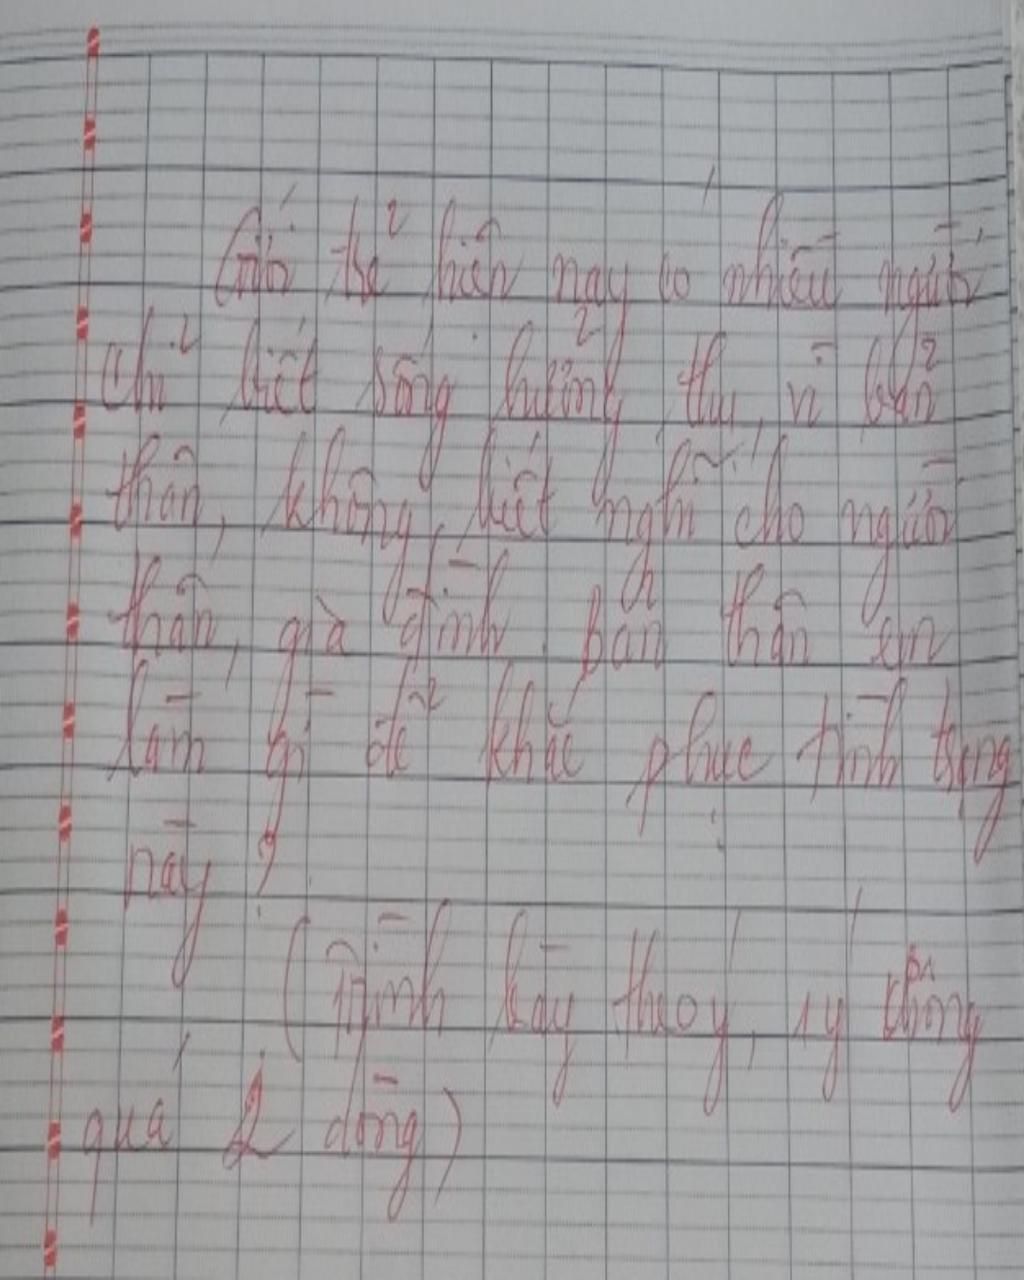 Giới trẻ hiện nay có nhiều người
chỉ biết sống hưởng thụ, vì bản
thân, không biết nghĩ cho người
thân, gia đình. Bản thân em
làm gì để khắc phục tình trạng
này ?
(Trình bày theo ý, 1 ý không
quá 2 dòng)